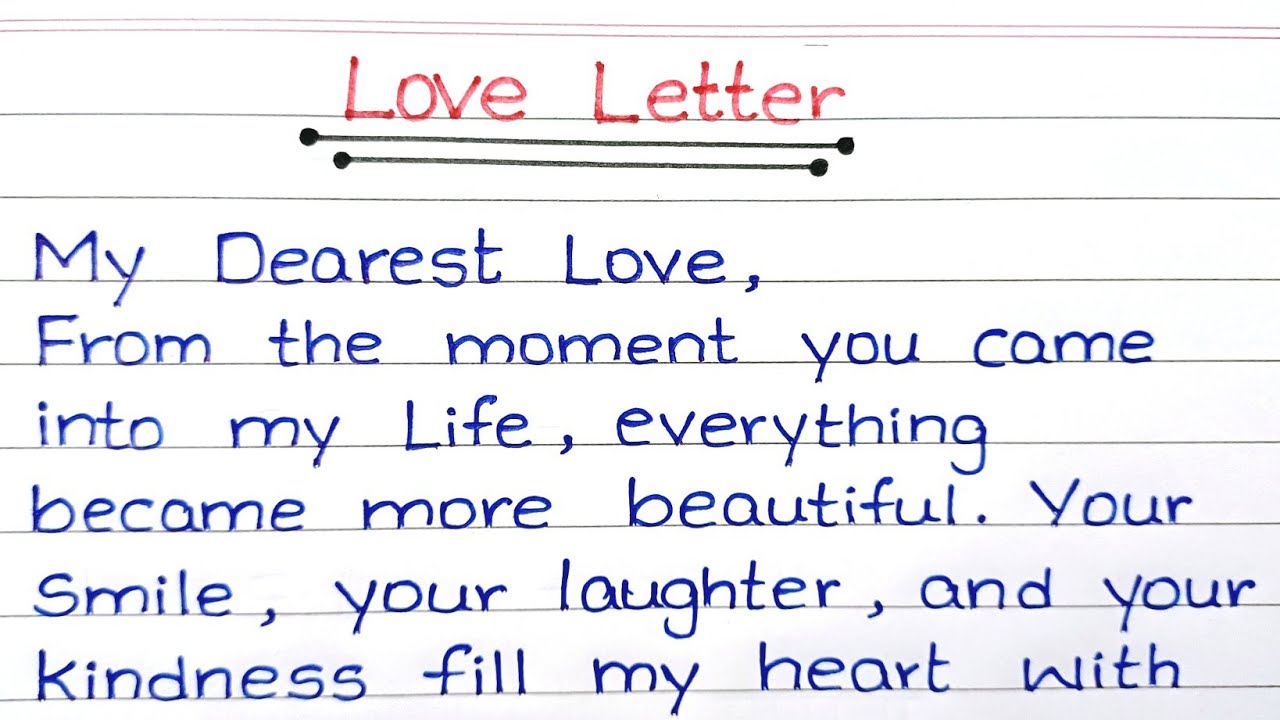 Love Letter
My Dearest Love,
From the moment you came
into my Life, everything
became more beautiful. Your
Smile, your laughter, and your
kindness fill my heart with